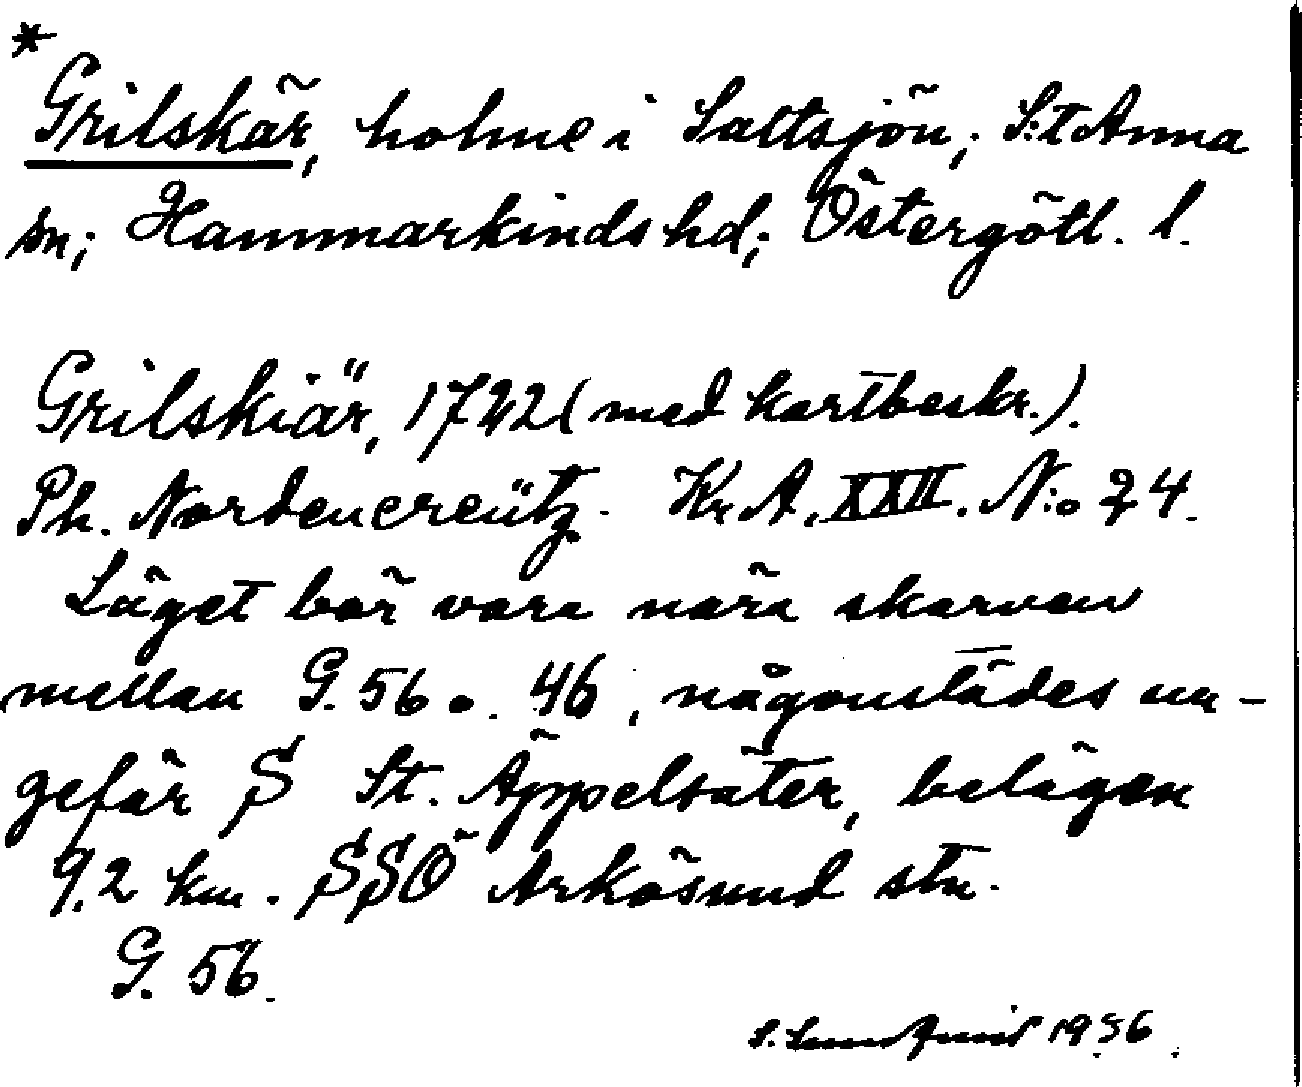 *
Grilskär, holme i Saltsjön; S:t Anna
sn; Hammarkinds hd; Östergötl. l.
Grilskiär, 1742 (med kartbeskr.).
Ph. Nordencreütz. Kr. A. XXII. N:o 24.
Läget bör vara nära skarven
mellan G. 56 o. 46, någonstädes un-
gefär S St. Äppelsäter, belägen
9,2 km. SSÖ Arkösund stn.
G. 56.
S. 1956.